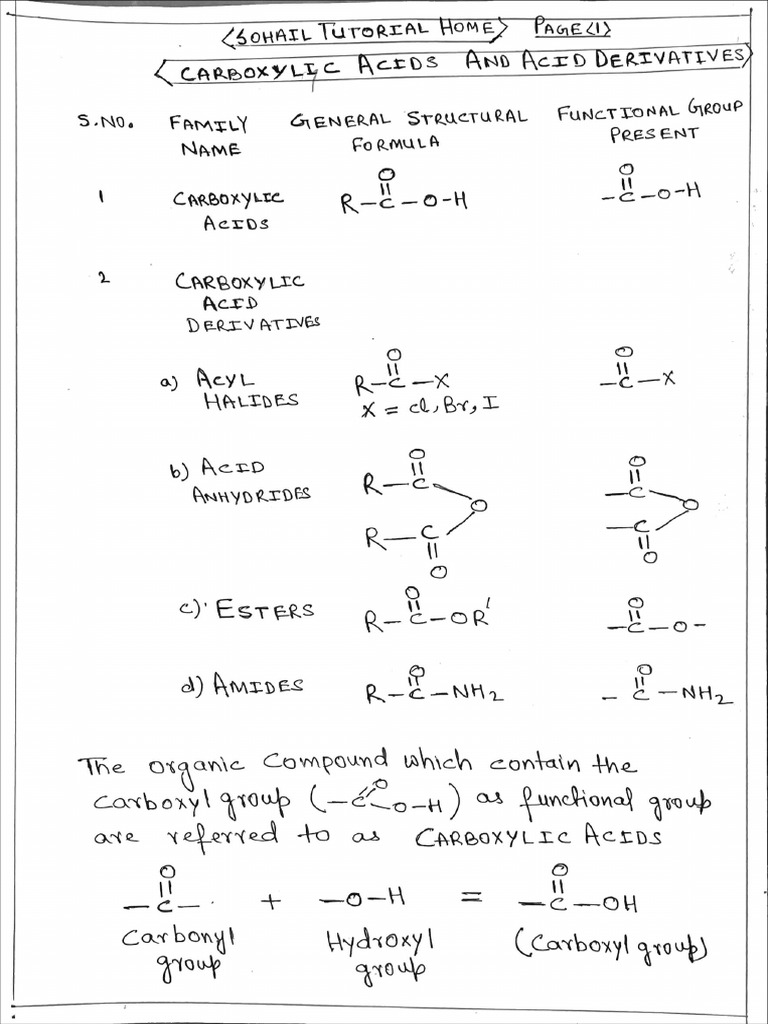 <SOHAIL TUTORIAL HOME> PAGE<1>
<CARBOXYLIC ACIDS AND ACID DERIVATIVES>
S.NO. FAMILY NAME GENERAL STRUCTURAL FORMULA FUNCTIONAL GROUP PRESENT
1 CARBOXYLIC ACIDS R-C(=O)-O-H -C(=O)-O-H
2 CARBOXYLIC ACID DERIVATIVES
a) ACYL HALIDES R-C(=O)-X -C(=O)-X
X = Cl, Br, I
b) ACID ANHYDRIDES R-C(=O)-O-C(=O)-R -C(=O)-O-C(=O)-
c) ESTERS R-C(=O)-OR' -C(=O)-O-
d) AMIDES R-C(=O)-NH2 -C(=O)-NH2
The organic compound which contain the
carboxyl group (-C(=O)-O-H) as functional group
are referred to as CARBOXYLIC ACIDS
-C(=O)- + -O-H = -C(=O)-OH
Carbonyl group Hydroxyl group (Carboxyl group)